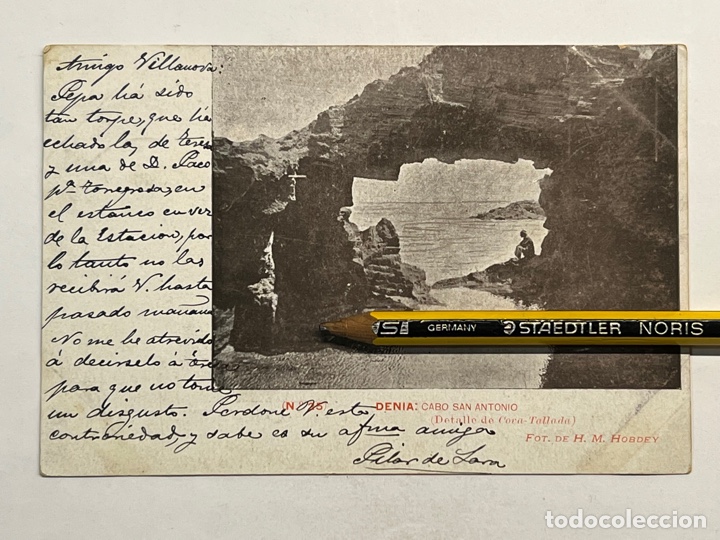 Amigo Villanova:
Pepa há sido
tan torpe, que ha
echado la, de Teresa
y una de D. Paco
pª Torregrosa, en
el estanco en vez
de la Estacion, por
lo tanto no las
recibirá V. hasta
pasado mañana
No me he atrevido
á decirselo á
para que no tome
un disgusto. Perdone V. esta
contrariedad, y sabe es su afma amiga
Pilar de Lara
DENIA: CABO SAN ANTONIO
(Detalle de Cova-Tallada)
FOT. DE H. M. HOBDEY
GERMANY STAEDTLER NORIS
todocoleccion.net